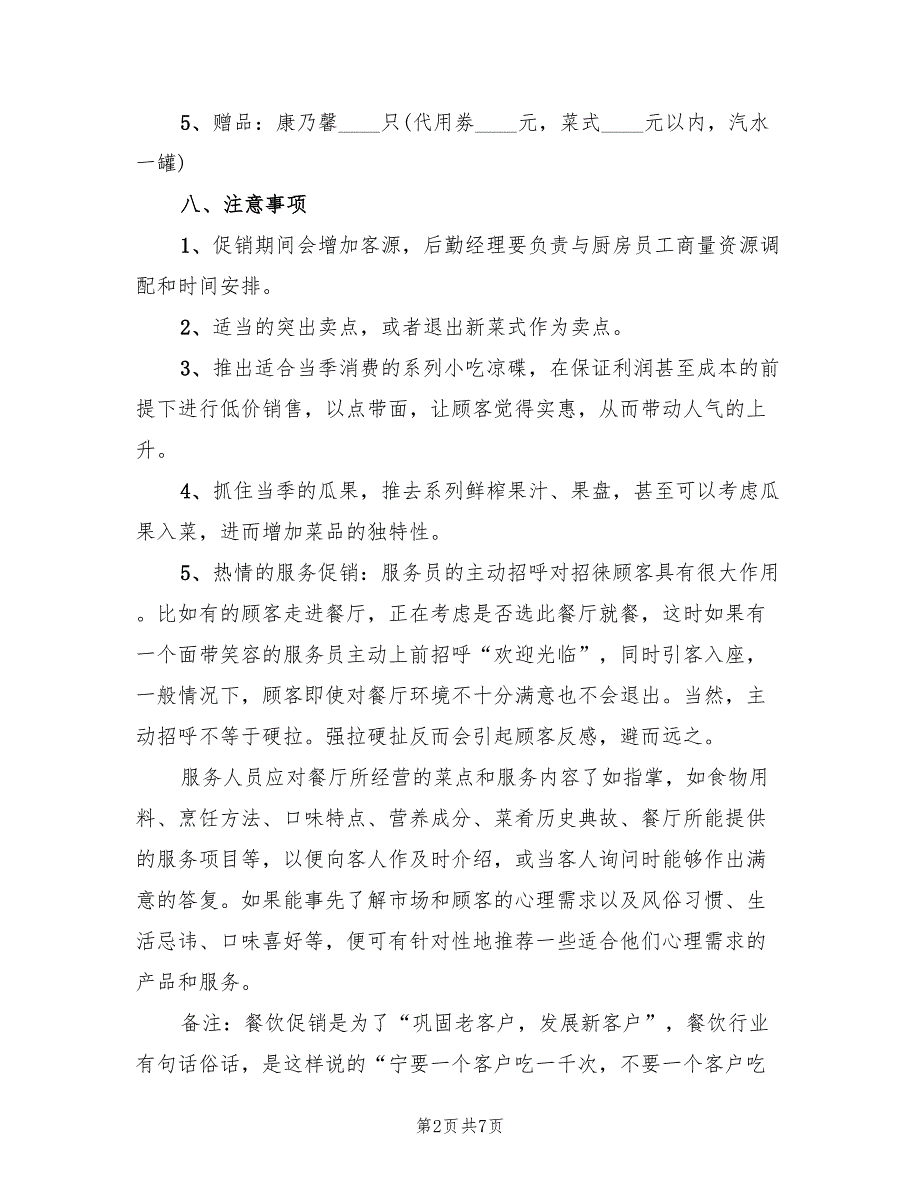 5、赠品：康乃馨____只(代用券____元，菜式____元以内，汽水
一罐)
八、注意事项
1、促销期间会增加客源，后勤经理要负责与厨房员工商量资源调
配和时间安排。
2、适当的突出卖点，或者退出新菜式作为卖点。
3、推出适合当季消费的系列小吃凉碟，在保证利润甚至成本的前
提下进行低价销售，以点带面，让顾客觉得实惠，从而带动人气的上
升。
4、抓住当季的瓜果，推去系列鲜榨果汁、果盘，甚至可以考虑瓜
果入菜，进而增加菜品的独特性。
5、热情的服务促销：服务员的主动招呼对招徕顾客具有很大作用
。比如有的顾客走进餐厅，正在考虑是否选此餐厅就餐，这时如果有
一个面带笑容的服务员主动上前招呼“欢迎光临”，同时引客入座，
一般情况下，顾客即使对餐厅环境不十分满意也不会退出。当然，主
动招呼不等于硬拉。强拉硬扯反而会引起顾客反感，避而远之。
服务人员应对餐厅所经营的菜点和服务内容了如指掌，如食物用
料、烹饪方法、口味特点、营养成分、菜肴历史典故、餐厅所能提供
的服务项目等，以便向客人作及时介绍，或当客人询问时能够作出满
意的答复。如果能事先了解市场和顾客的心理需求以及风俗习惯、生
活忌讳、口味喜好等，便可有针对性地推荐一些适合他们心理需求的
产品和服务。
备注：餐饮促销是为了“巩固老客户，发展新客户”，餐饮行业
有句话俗话，是这样说的“宁要一个客户吃一千次，不要一个客户吃
第2页共7页